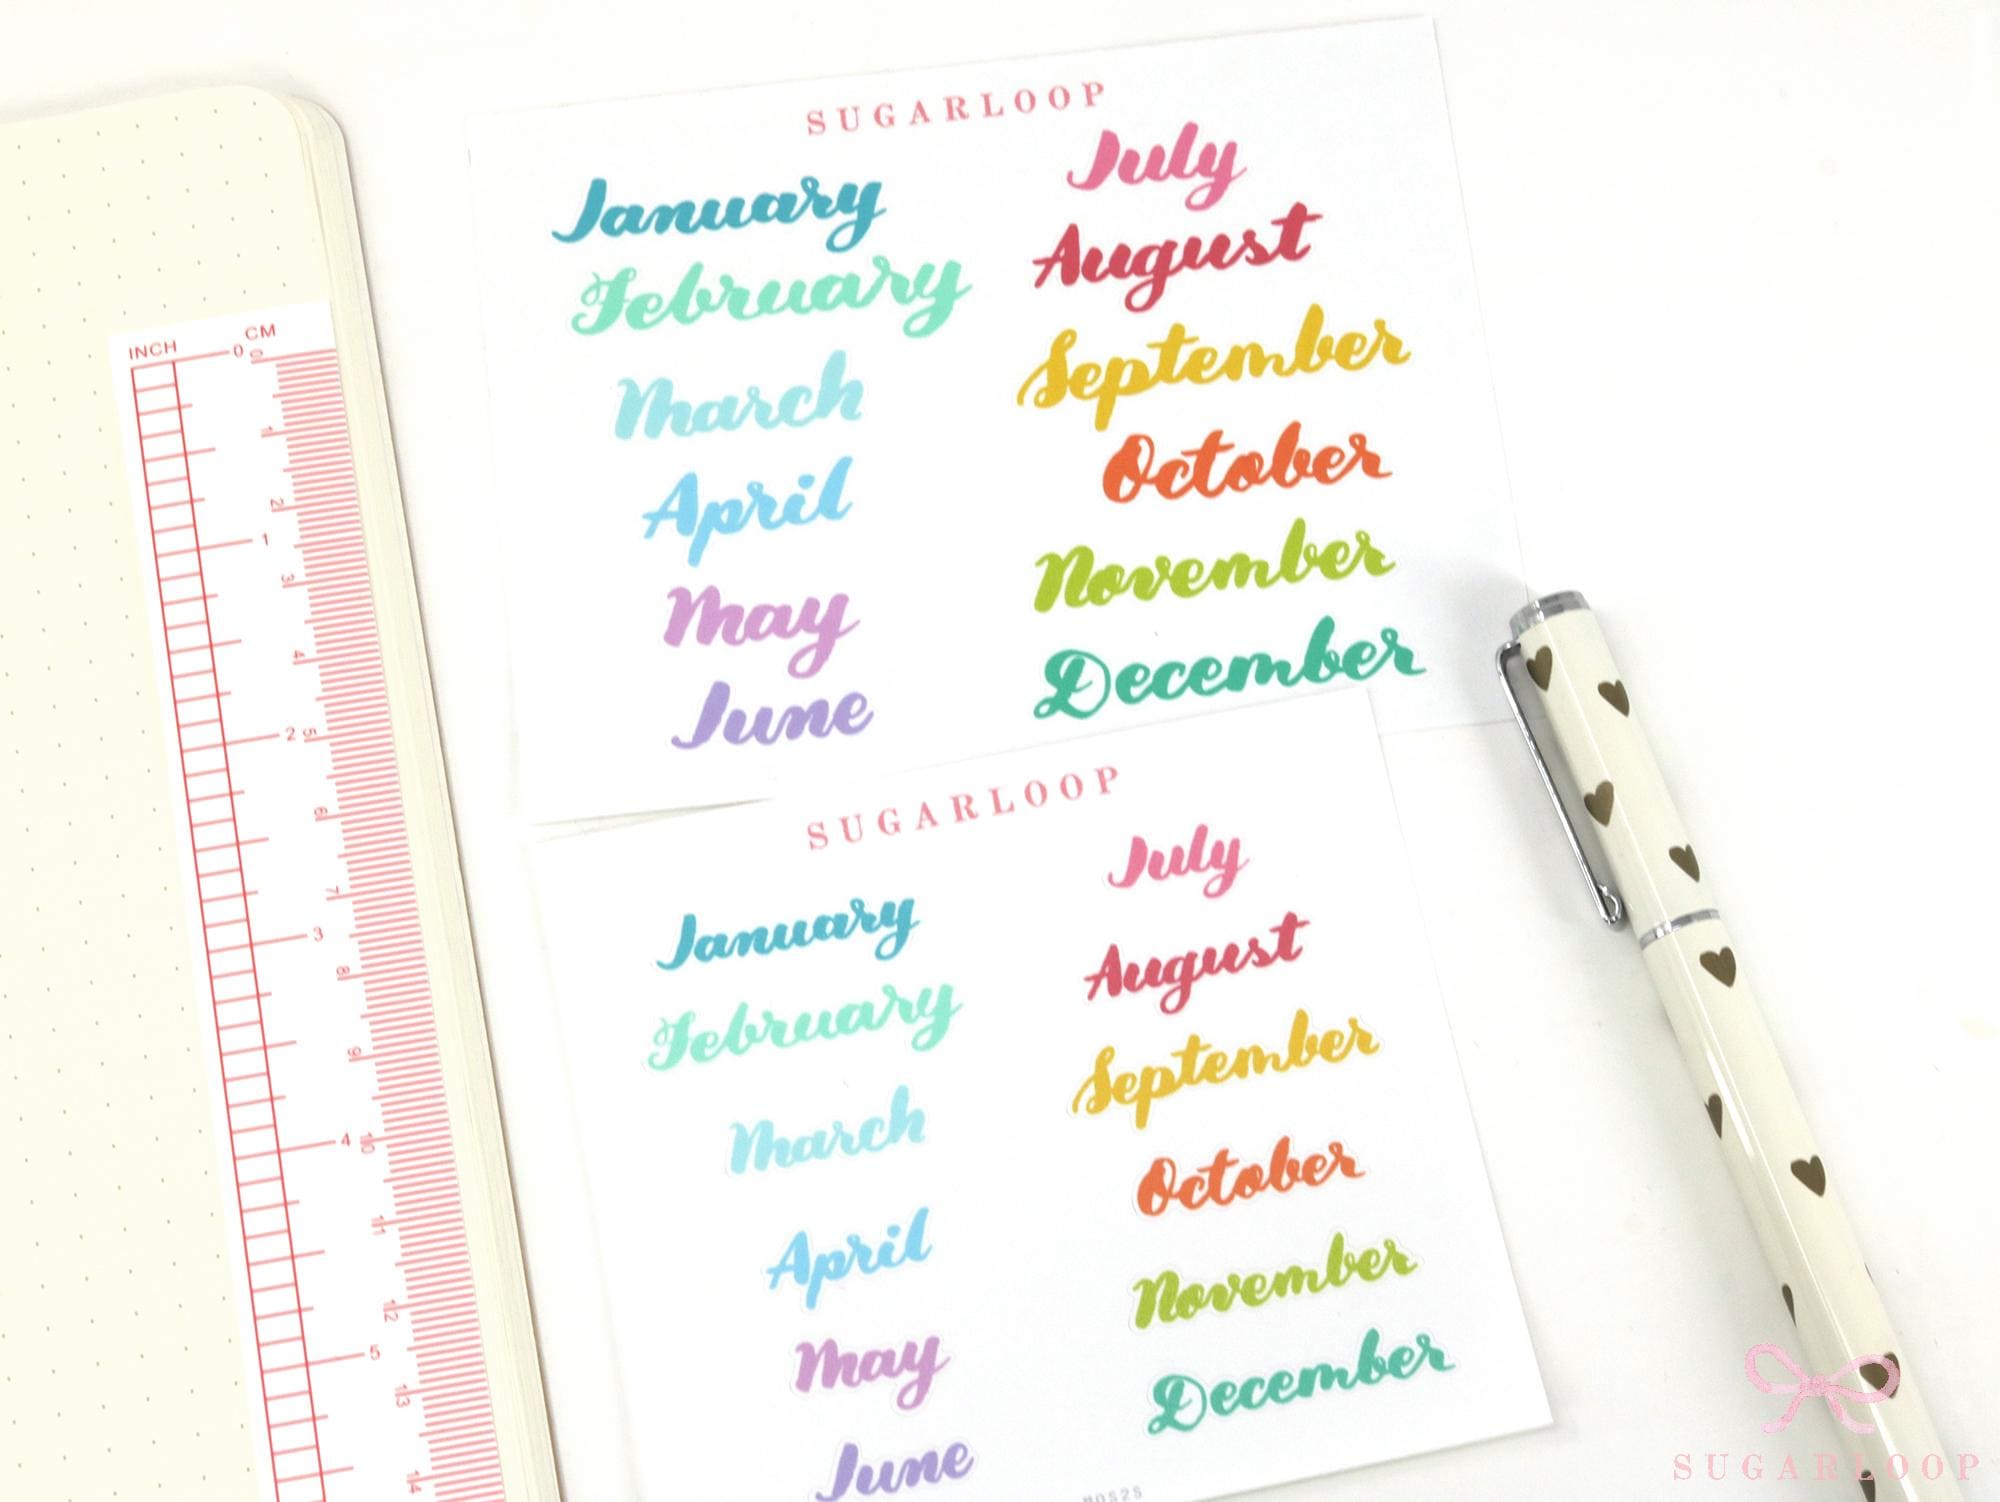 SUGARLOOP
January
February
March
April
May
June
July
August
September
October
November
December
SUGARLOOP
January
February
March
April
May
June
July
August
September
October
November
December
INCH
CM
0 0
1
2
1
3
4
2 5
6
7
3
8
9
4 10
11
12
5
13
14
SUGARLOOP